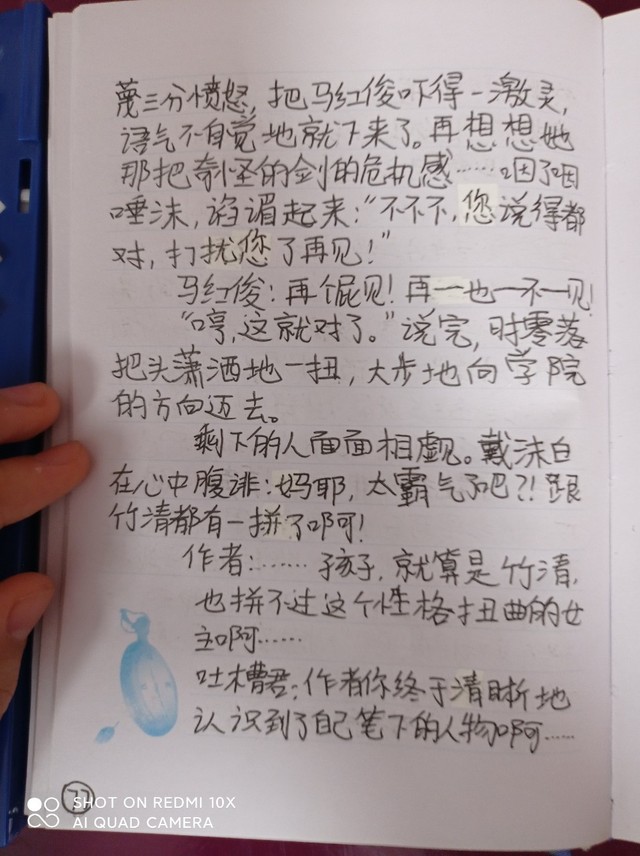 蔑三分愤怒，把马红俊吓得一激灵，
语气不自觉地就下来了。再想想她
那把奇怪的剑的危机感……咽了咽
唾沫，谄媚起来：“不不不，您说得都
对，打扰您了再见！”
马红俊：再个屁见！再一也一不一见！
“哼，这就对了。”说完，时零落
把头潇洒地一扭，大步地向学院
的方向迈去。
剩下的人面面相觑。戴沐白
在心中腹诽：妈耶，太霸气了吧？！跟
竹清都有一拼了啊！
作者：……孩子，就算是竹清，
也拼不过这个性格扭曲的女
主啊……
吐槽君：作者你终于清晰地
认识到了自己笔下的人物啊……
77
SHOT ON REDMI 10X
AI QUAD CAMERA